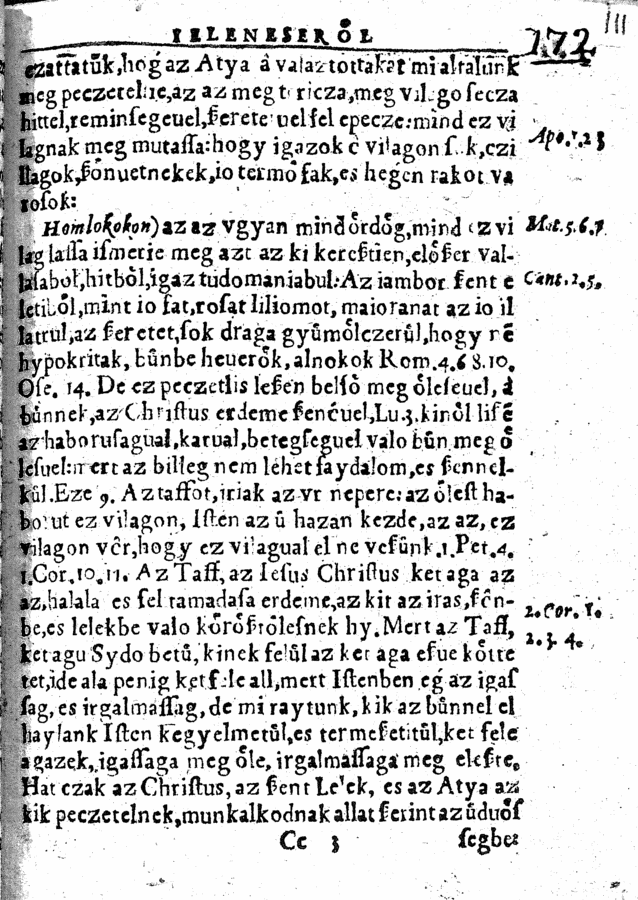 IELENESERŐL 172 111
ezattatůk,hoǵ az Atya â valaztottakat mi altalunk
meg peczetelne,az az meg tericza,meg vilagosecza
hittel,reminsegeuel,ßerete uel fel epecze:mind ez vi
lagnak meg mutassa:hogy igazok e vilagon sok,ezi
llagok,ßőnuetnekek,io termő fak,es hegen rakot va
rosok: Apo.7.23
Homlokokon) az az vgyan mind ördög,mind ez vi Mat.5.6.7
lag lassa ismerie meg azt az ki kerestien,előßer val-
lasabol,hitből,igaz tudomaniabul:Az iambor ßent e Cant.2.5.
letiből,mint io fat,rosat liliomot, maioranat az io il
latrul,az ßeretet,sok draga gyůmőlczerůl,hogy nē
hypokritak, bůnbe heuerők,alnokok Rom.4.6 8.10.
Ose. 14. De ez peczetlis leßen belső meg őleseuel, à
bůnnek,az Christus erdeme ßenéuel,Lu.3.kinől lisē
az haborusagual,karual,betegseguel valo bůn meg ő
lesuel:mert az billeg nem lehet saydalom,es ßennel-
kůl.Eze 9. Az taffot,iriak az vr nepere:az őlest ha-
borut ez vilagon, Isten az ů hazan kezde,az az, ez
vilagon vêr,hogy ez vilagual el ne veßünk.1.Pet.4.
1.Cor.10.11. Az Taff,az Iesus Christus ket aga az
az,halala es fel tamadasa erdeme,az kit az iras,ßen-
be,es lelekbe valo kőrőßtőlesnek hy.Mert az Taff, 2.Cor.1.
ket agu Sydo betů, kinek felůl az ket aga esue kőtte 2.3.4.
tet,ide ala penig ket fele all,mert Istenben eǵ az igas
sag,es irgalmassag,de mi raytunk,kik az bůnnel el
haylank Isten kegyelmetůl,es termeßetitůl,ket fele
agazek,igassaga meg őle, irgalmassaga meg eleßte.
Hat czak az Christus,az ßent Lelek, es az Atya az
kik peczetelnek,munkalkodnak allat ßerint az ůduős
Cc 3 segbe: